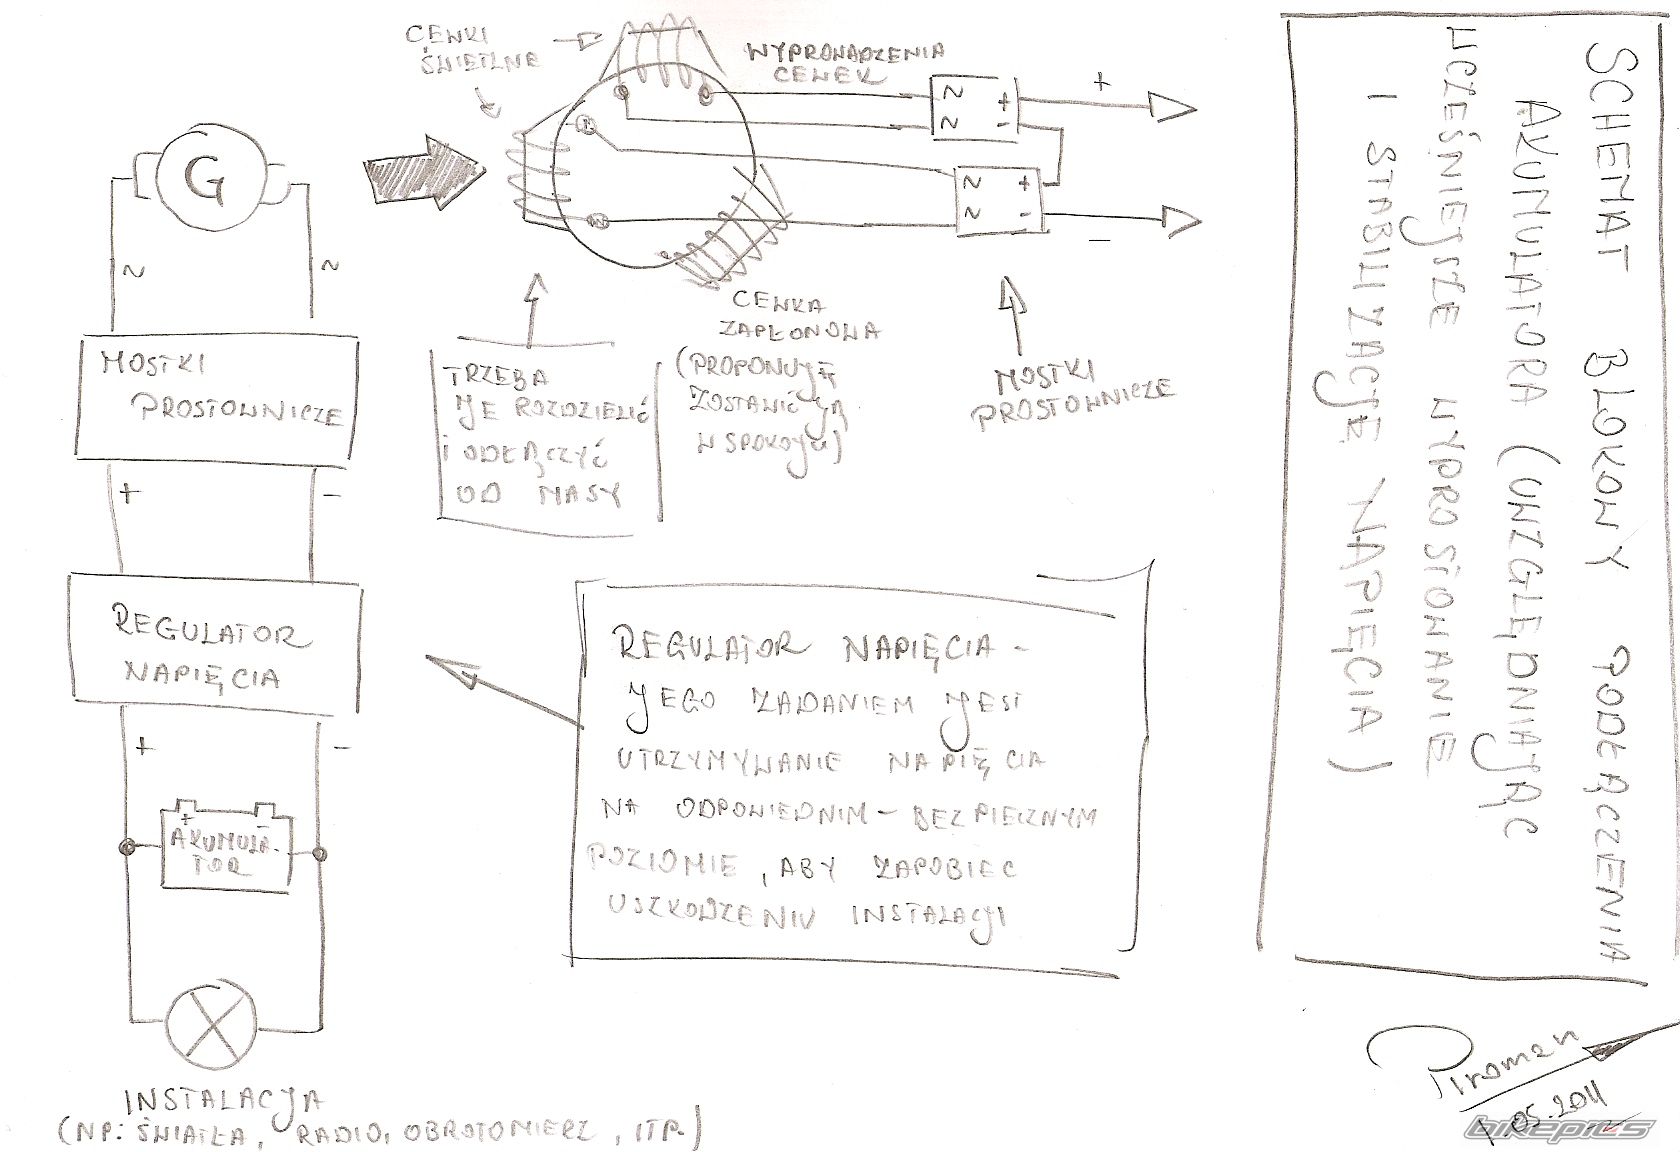 SCHEMAT BLOKOWY PODŁĄCZENIA
AKUMULATORA (UWZGLĘDNIAJĄC
WCZEŚNIEJSZE WYPROSTOWANIE
I STABILIZACJĘ NAPIĘCIA)
CEWKI
ŚWIETLNE
WYPROWADZENIA
CEWEK
~
~
+
-
+
~
~
+
-
-
G
~
~
CEWKA
ZAPŁONOWA
(PROPONUJĘ
ZOSTAWIĆ JĄ
W SPOKOJU)
TRZEBA
JE ROZDZIELIĆ
I ODŁĄCZYĆ
OD MASY
MOSTKI
PROSTOWNICZE
MOSTKI
PROSTOWNICZE
+ -
REGULATOR
NAPIĘCIA
+ -
REGULATOR NAPIĘCIA -
JEGO ZADANIEM JEST
UTRZYMYWANIE NAPIĘCIA
NA ODPOWIEDNIM - BEZPIECZNYM
POZIOMIE, ABY ZAPOBIEC
USZKODZENIU INSTALACJI
+
AKUMULA-
TOR
INSTALACJA
(NP: ŚWIATŁA, RADIO, OBROTOMIERZ, ITP.)
Piroman
1.05.2011
bikepics